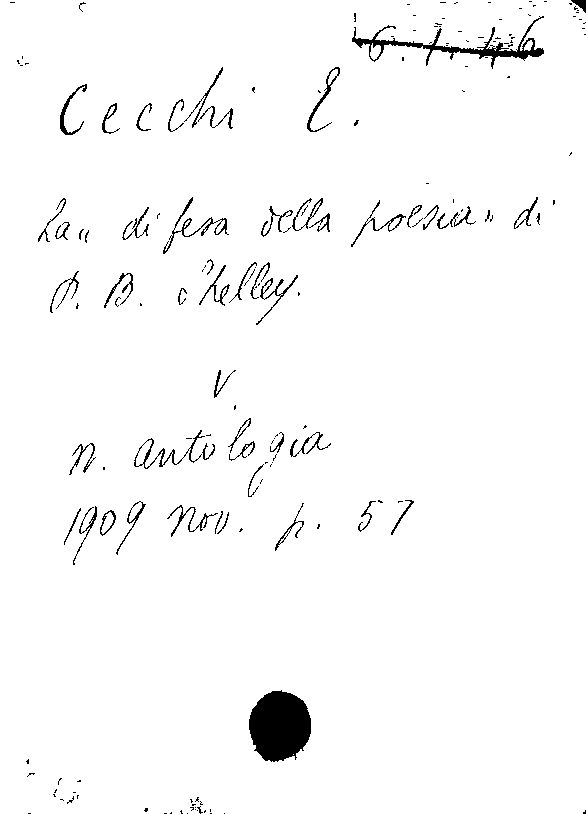 6.1.46
Cecchi E.
La „ difesa della poesia „ di
P. B. Shelley.
V.
N. Antologia
1909 Nov. p. 57